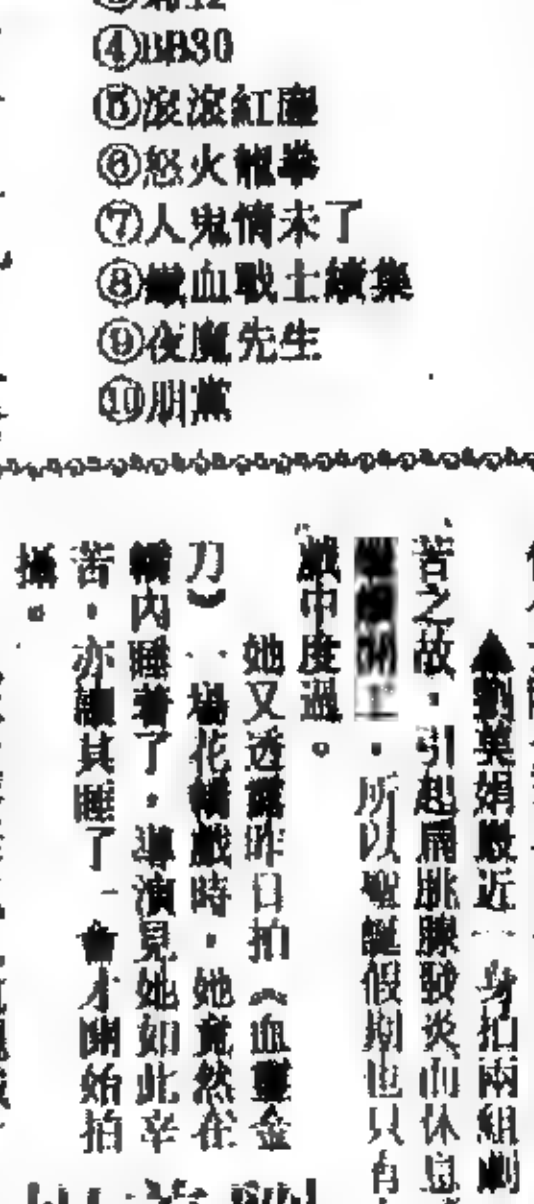 ④BB30
⑤滾滾紅塵
⑥怒火龍拳
⑦人鬼情未了
⑧鐵血戰士續集
⑨夜魔先生
⑩朋黨
▲劉美娟最近一身拍兩組劇
苦之故，引起扁脁腺發炎而休息
，所以聖誕假期也只有
戲中度過。
她又透露昨日拍《血靈金
刀》一場花轎戲時，她竟然在
轎內睡着了，導演見她如此辛
苦，亦讓其睡了一會才開始拍
攝。